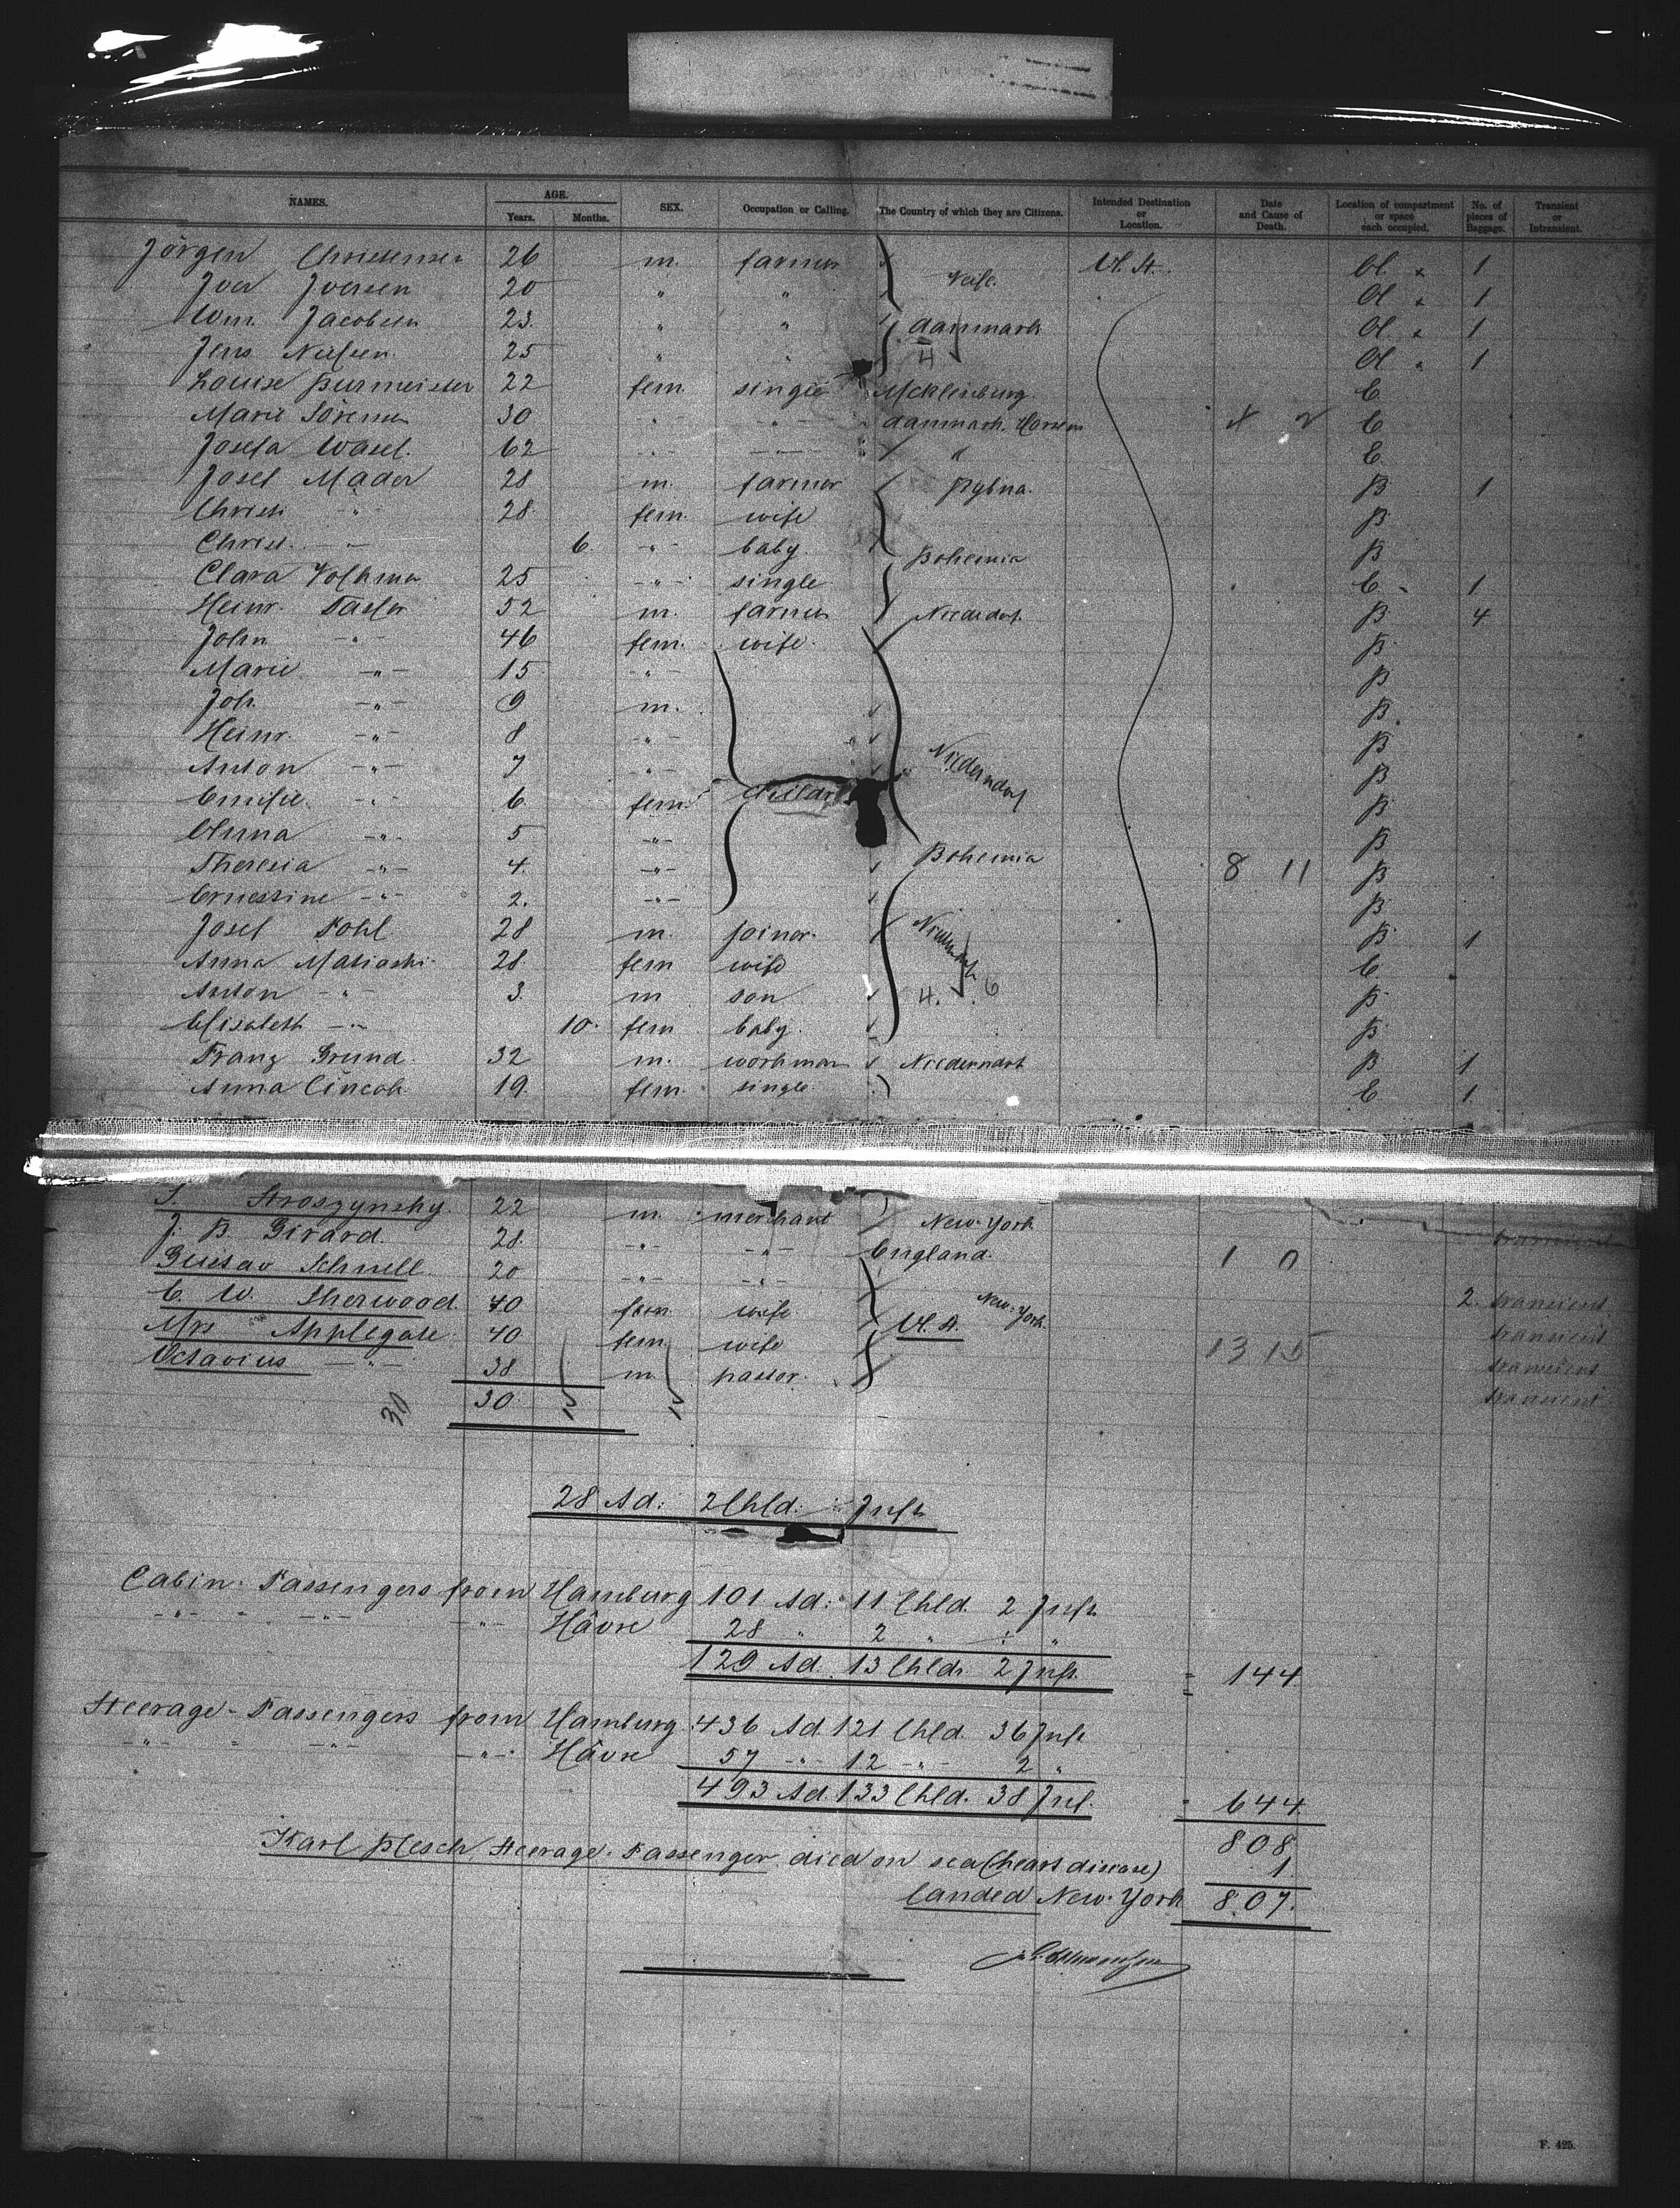 NAMES. AGE. Years. Months. SEX. Occupation or Calling. The Country of which they are Citizens. Intended Destination or Location. Date and Cause of Death. Location of compartment or space each occupied. No. of pieces of Baggage. Transient or Intransient.
Jörgen Christensen 26 m. farmer U. St. 1
Iver Iversen 20 " " 1
Wm. Jacobsen 23. " " Danmark 1
Jens Nielsen 25 " " 4 1
Louise Burmeister 22 fem. single Mcklenburg. E
Marie Sörensen 30 -"- -"- Danmark. Horsens E
Josefa Wasel. 62 -"- -"- " E
Josef Mader 28 m. farmer B 1
Christi " 28 fem. wife B
Christ. -"- 6. -"- baby. Bohemia B
Clara 25 -"- single E 1
Heinr. 52 m. farmer B 4
John -"- 46 fem. wife B
Marie -"- 15 -"- B
Joh. -"- 9 m. B
Heinr. -"- 8 -"- B
Anton -"- 7 -"- Niederndorf B
Emilie -"- 6 fem. B
Anna -"- 5 -"- B
Theresia -"- 4. -"- Bohemia 8 11 B
Ernestine -"- 2. -"- B
Josef Pohl 28 m. joiner B 1
Anna 28 fem wife E
Anton -"- 3. m son 4. 6 B
Elisabeth -"- 10. fem baby. B
Franz Grund. 32 m. workman B 1
Anna 19. fem. single E 1
S. Stroszynsky. 22 m. merchant New-York
J. B. Girard. 28. -"- -"- England. 1 0
Gustav Schnell. 20 -"- -"-
C. W. Sherwood. 40 fem. wife New-York. 2. transient
Mrs Applegate. 40 fem. wife U. St. 13 15 transient
Octavius -"- 38 m. pastor. transient
30 30 transient
28 Ad: 2 Chld: Infts
Cabin-Passengers from Hamburg 101 Ad: 11 Chld. 2 Infts
-"- -"- -"- Hâvre 28 " 2 " "
129 Ad. 13 Chldr. 2 Infts. = 144
Steerage-Passengers from Hamburg 436 Ad. 121 Chld. 36 Infts
-"- -"- -"- Hâvre 57 -"- 12 -"- 2 "
493 Ad. 133 Chld. 38 Inf. = 644
808
Karl Plesch, Steerage-Passenger died on sea (heart disease) 1.
landed New-York 807.
F. 425.